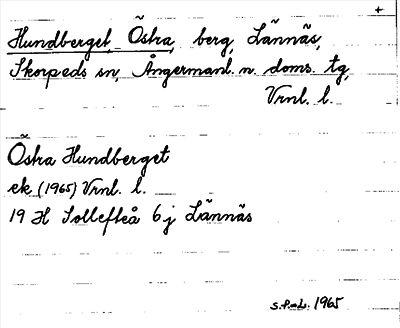 +
Hundberget, Östra, berg, Lännäs,
Skorpeds sn, Ångermanl. n. doms. tg,
Vrnl. l.
Östra Hundberget
ek (1965) Vrnl. l.
19 H Sollefteå 6j Lännäs
1965